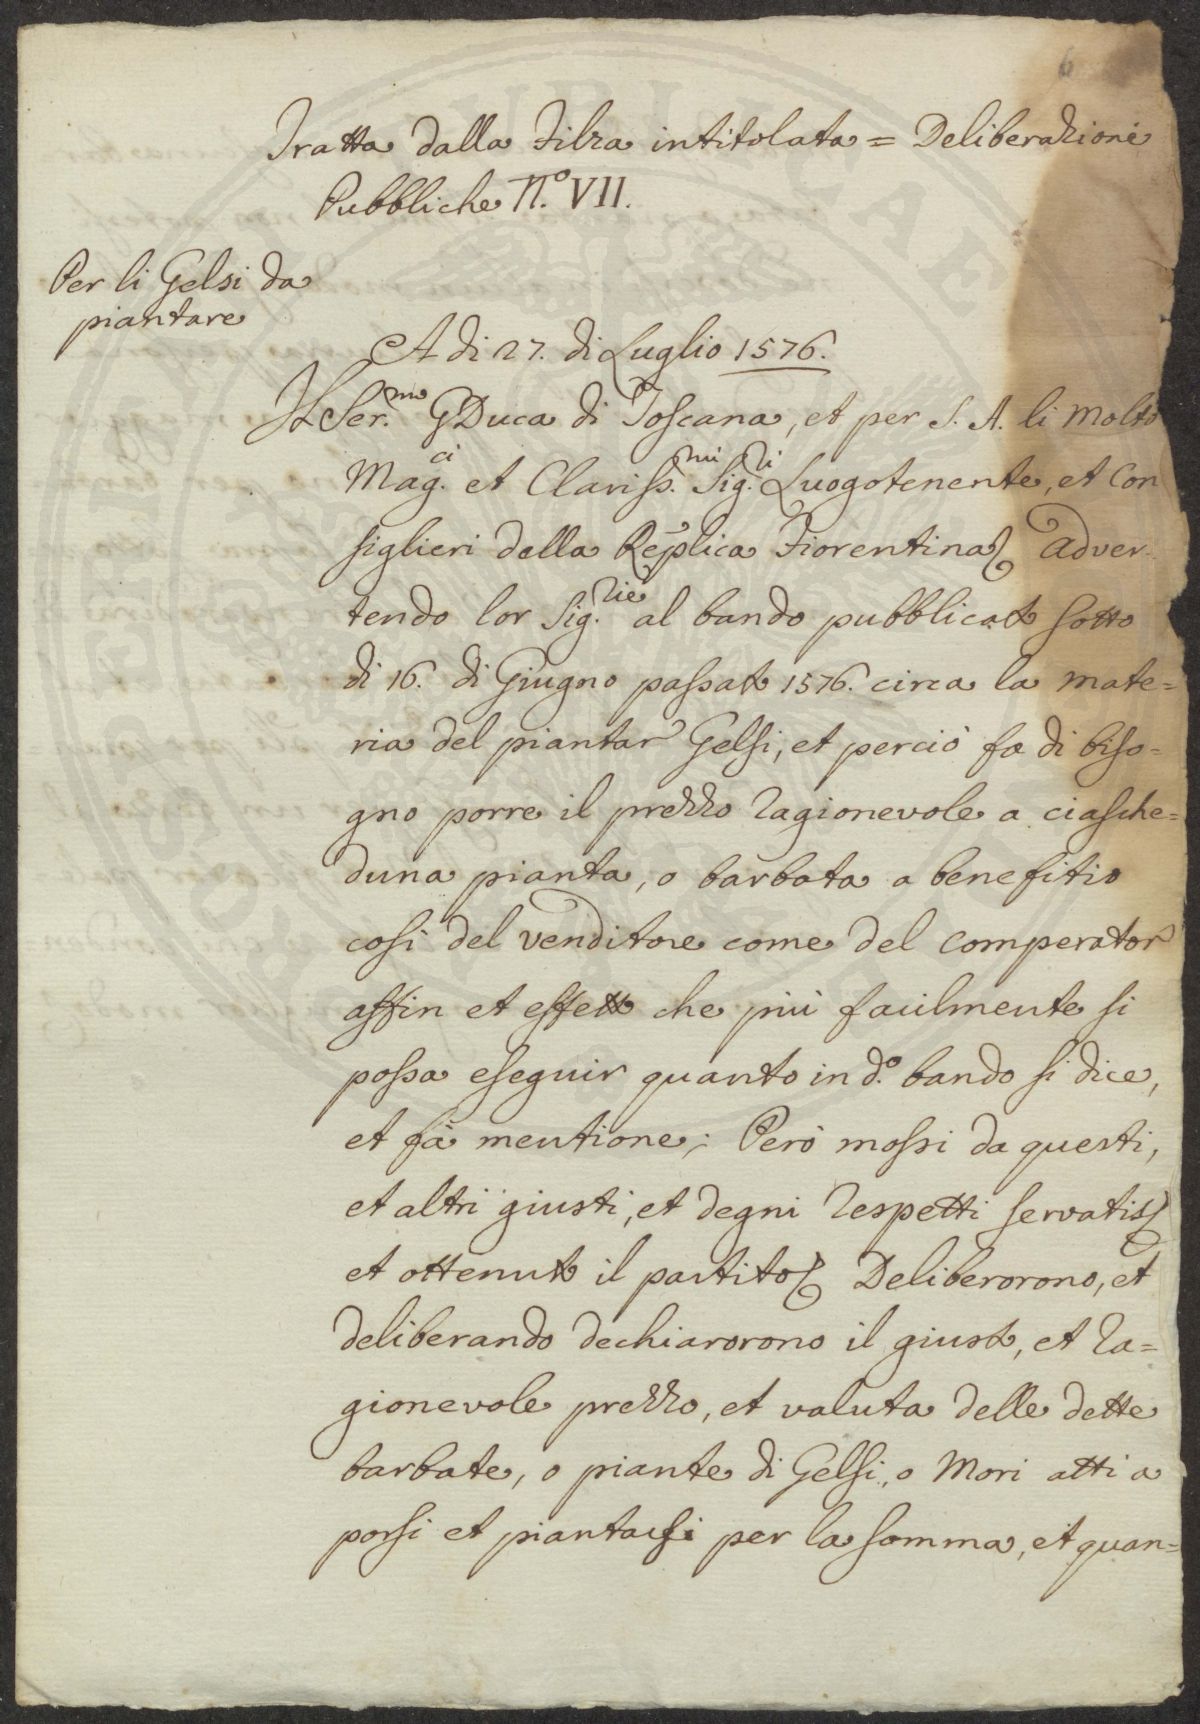 6
Tratta dalla Filza intitolata = Deliberazioni
Pubbliche N.º VII.
Per li Gelsi da
piantare
A di 27. di Luglio 1576.
Il Ser.mo GDuca di Toscana, et per S. A. li Molto
Mag.ci et Clariss.mi Sig.ri Luogotenente, et Con
siglieri della Rep̄plica Fiorentina Adver-
tendo lor Sig.rie al bando pubblicato sotto
di 16. di Giugno passato 1576. circa la mate=
ria del piantar Gelsi, et perciò fa di biso=
gno porre il prezzo ragionevole a ciasche=
duna pianta, o barbata a benefitio
cosi del venditore come del comperator
affin et effetto che più facilmente si
possa eseguir quanto in d.º bando si dice,
et fà mentione; Però mossi da questi,
et altri giusti, et degni respetti servatis
et ottenuto il partito Deliberorono, et
deliberando dechiarorono il giusto, et ra=
gionevole prezzo, et valuta delle dette
barbate, o piante di Gelsi, o Mori atti a
porsi et piantarsi per la somma, et quan=